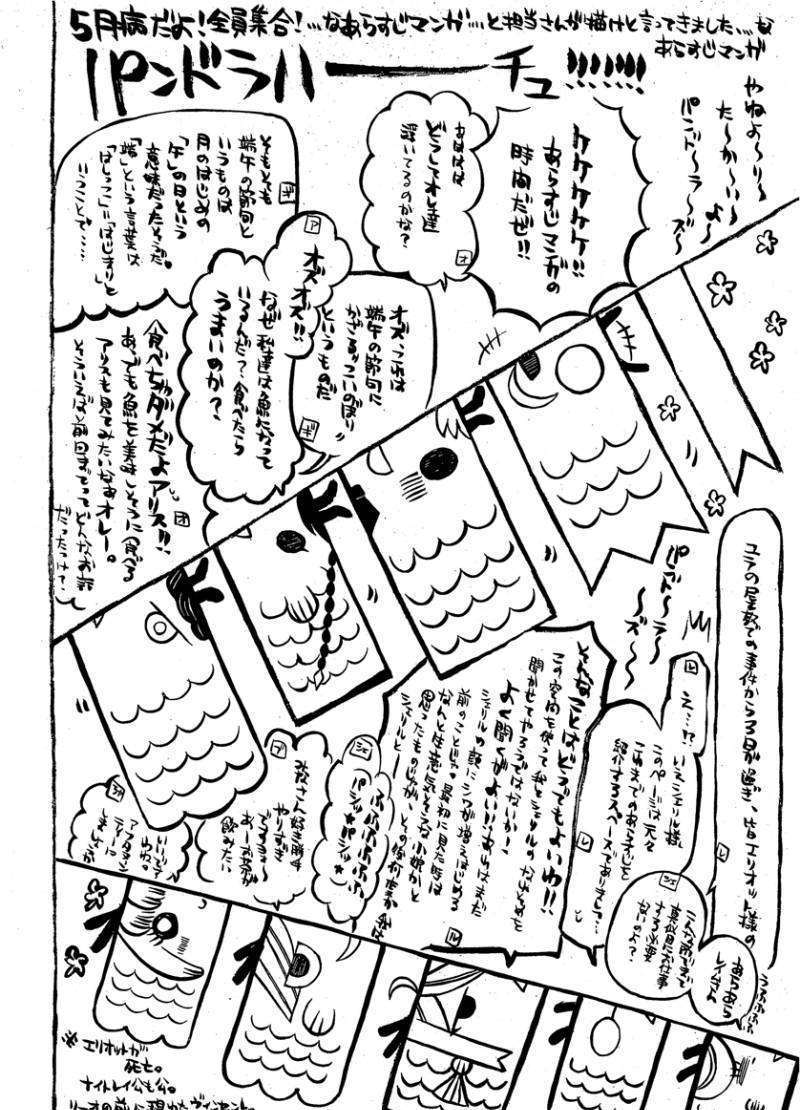 5月病だよ!全員集合!…なあらすじマンガ…と担当さんが描けと言ってきました…な
あらすじマンガ
パンドラハーーチュ!!!!!!!
やねよ〜り〜
た〜か〜い〜
よ〜
パンド〜ラ〜ズ〜
ケケケケケ!!
あらすじマンガの
時間だぜ!!
あははは
どうしてオレ達
浮いてるのかな?
オ
そもそも
端午の節句と
いうものは
月のはじめの
「午」の日という
意味だったそうだ。
「端」という言葉は
「はしっこ」に「はじまり」と
いうことで……
ギ
ア
オズオズ!!
なぜ私達は魚になって
いるんだ?食べたら
うまいのか?
オズ、これは
端午の節句に
かざる"こいのぼり"
というものだ
ギ
食べちゃダメだよアリス!!
あっでも魚を美味しそうに食べる
アリスも見てみたいなあオレー。
そういえば前回までってどんなお話
だったっけ?
オ
パンド〜ラ〜
ズ〜〜
ユラの屋敷での事件から3日が過ぎ、皆エリオット様の
レ
え…!?
いえシェリル様
このページは元々
これまでのあらすじを
紹介するスペースでありまして…
レ
シェ
こんな時まで
真似目にお仕事
する必要
ないのよ?
あらあら
レイムさん
うふふふふ
そんなことはどうでもよいわ!!
この空間を使って我とシェリルのなれそめを
聞かせてやろうではないか!
よく聞くがよい!!あれはまだ
シェリルの顔にシワが増えはじめる
前のことじゃ。最初に見た時は
なんと生意気そうな小娘かと
思ったものじゃが、その後何度か我は
シェリルとー
ル
シェ
ふふふふふふ
パシッ★パシッ★
ブ
皆さん好き勝手
やりすぎ
ですヨ〜
あーお茶が
飲みたい
シャ
いいですわね。
アフタヌーン
ティーに
しましょうか
※エリオットが
死亡。
ナイトレイ公も公。
リーオの前に現れたヴィンセント。